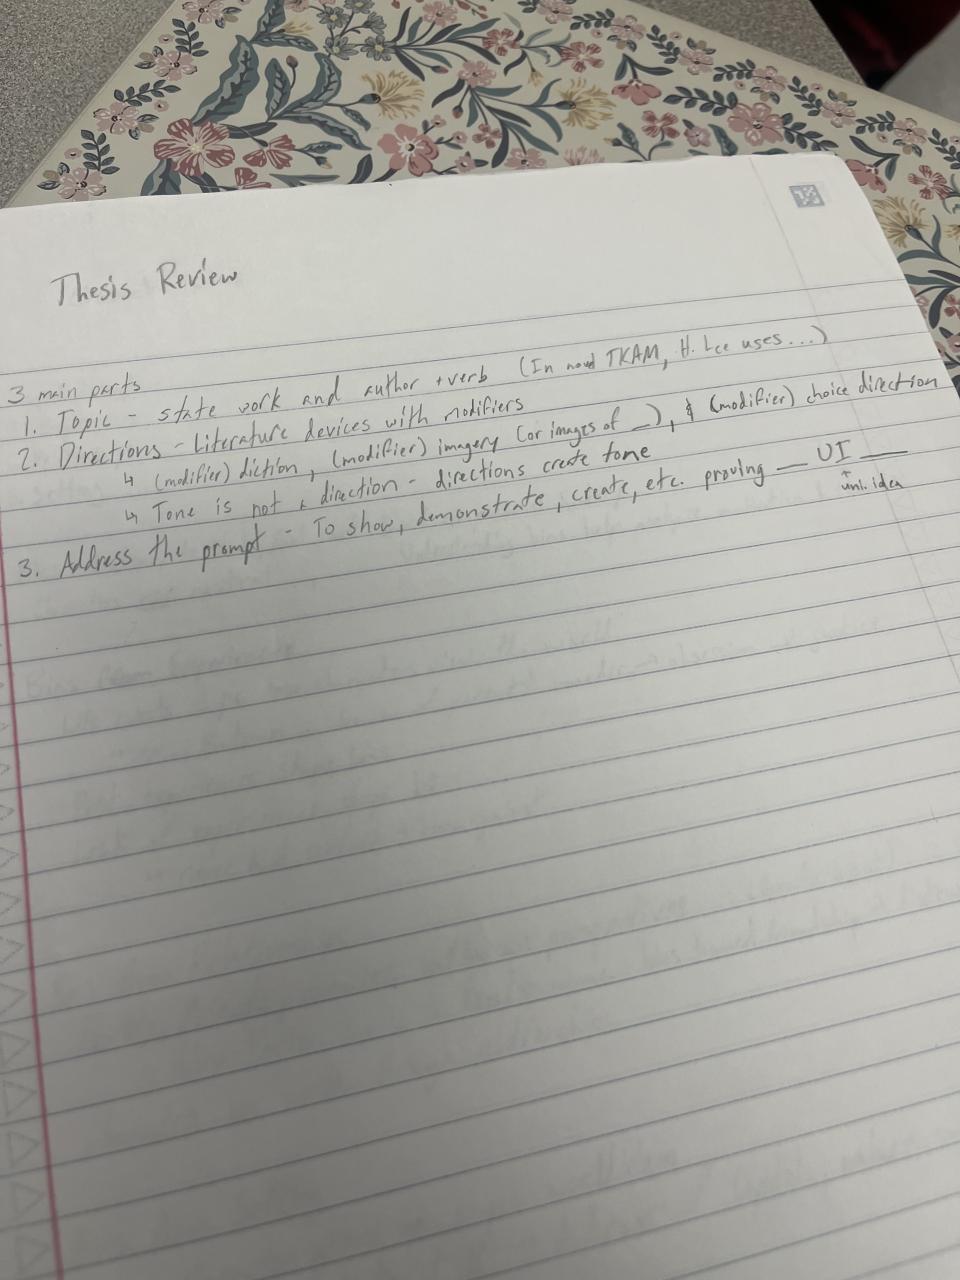 Thesis Review
3 main parts
1. Topic - state work and author + verb (In novel TKAM, H. Lee uses...)
2. Directions - Literature devices with modifiers
↳ (modifier) diction, (modifier) imagery (or images of _), & (modifier) choice direction
↳ Tone is not a direction - directions create tone
3. Address the prompt - To show, demonstrate, create, etc. proving __ UI __
↑
uni. idea